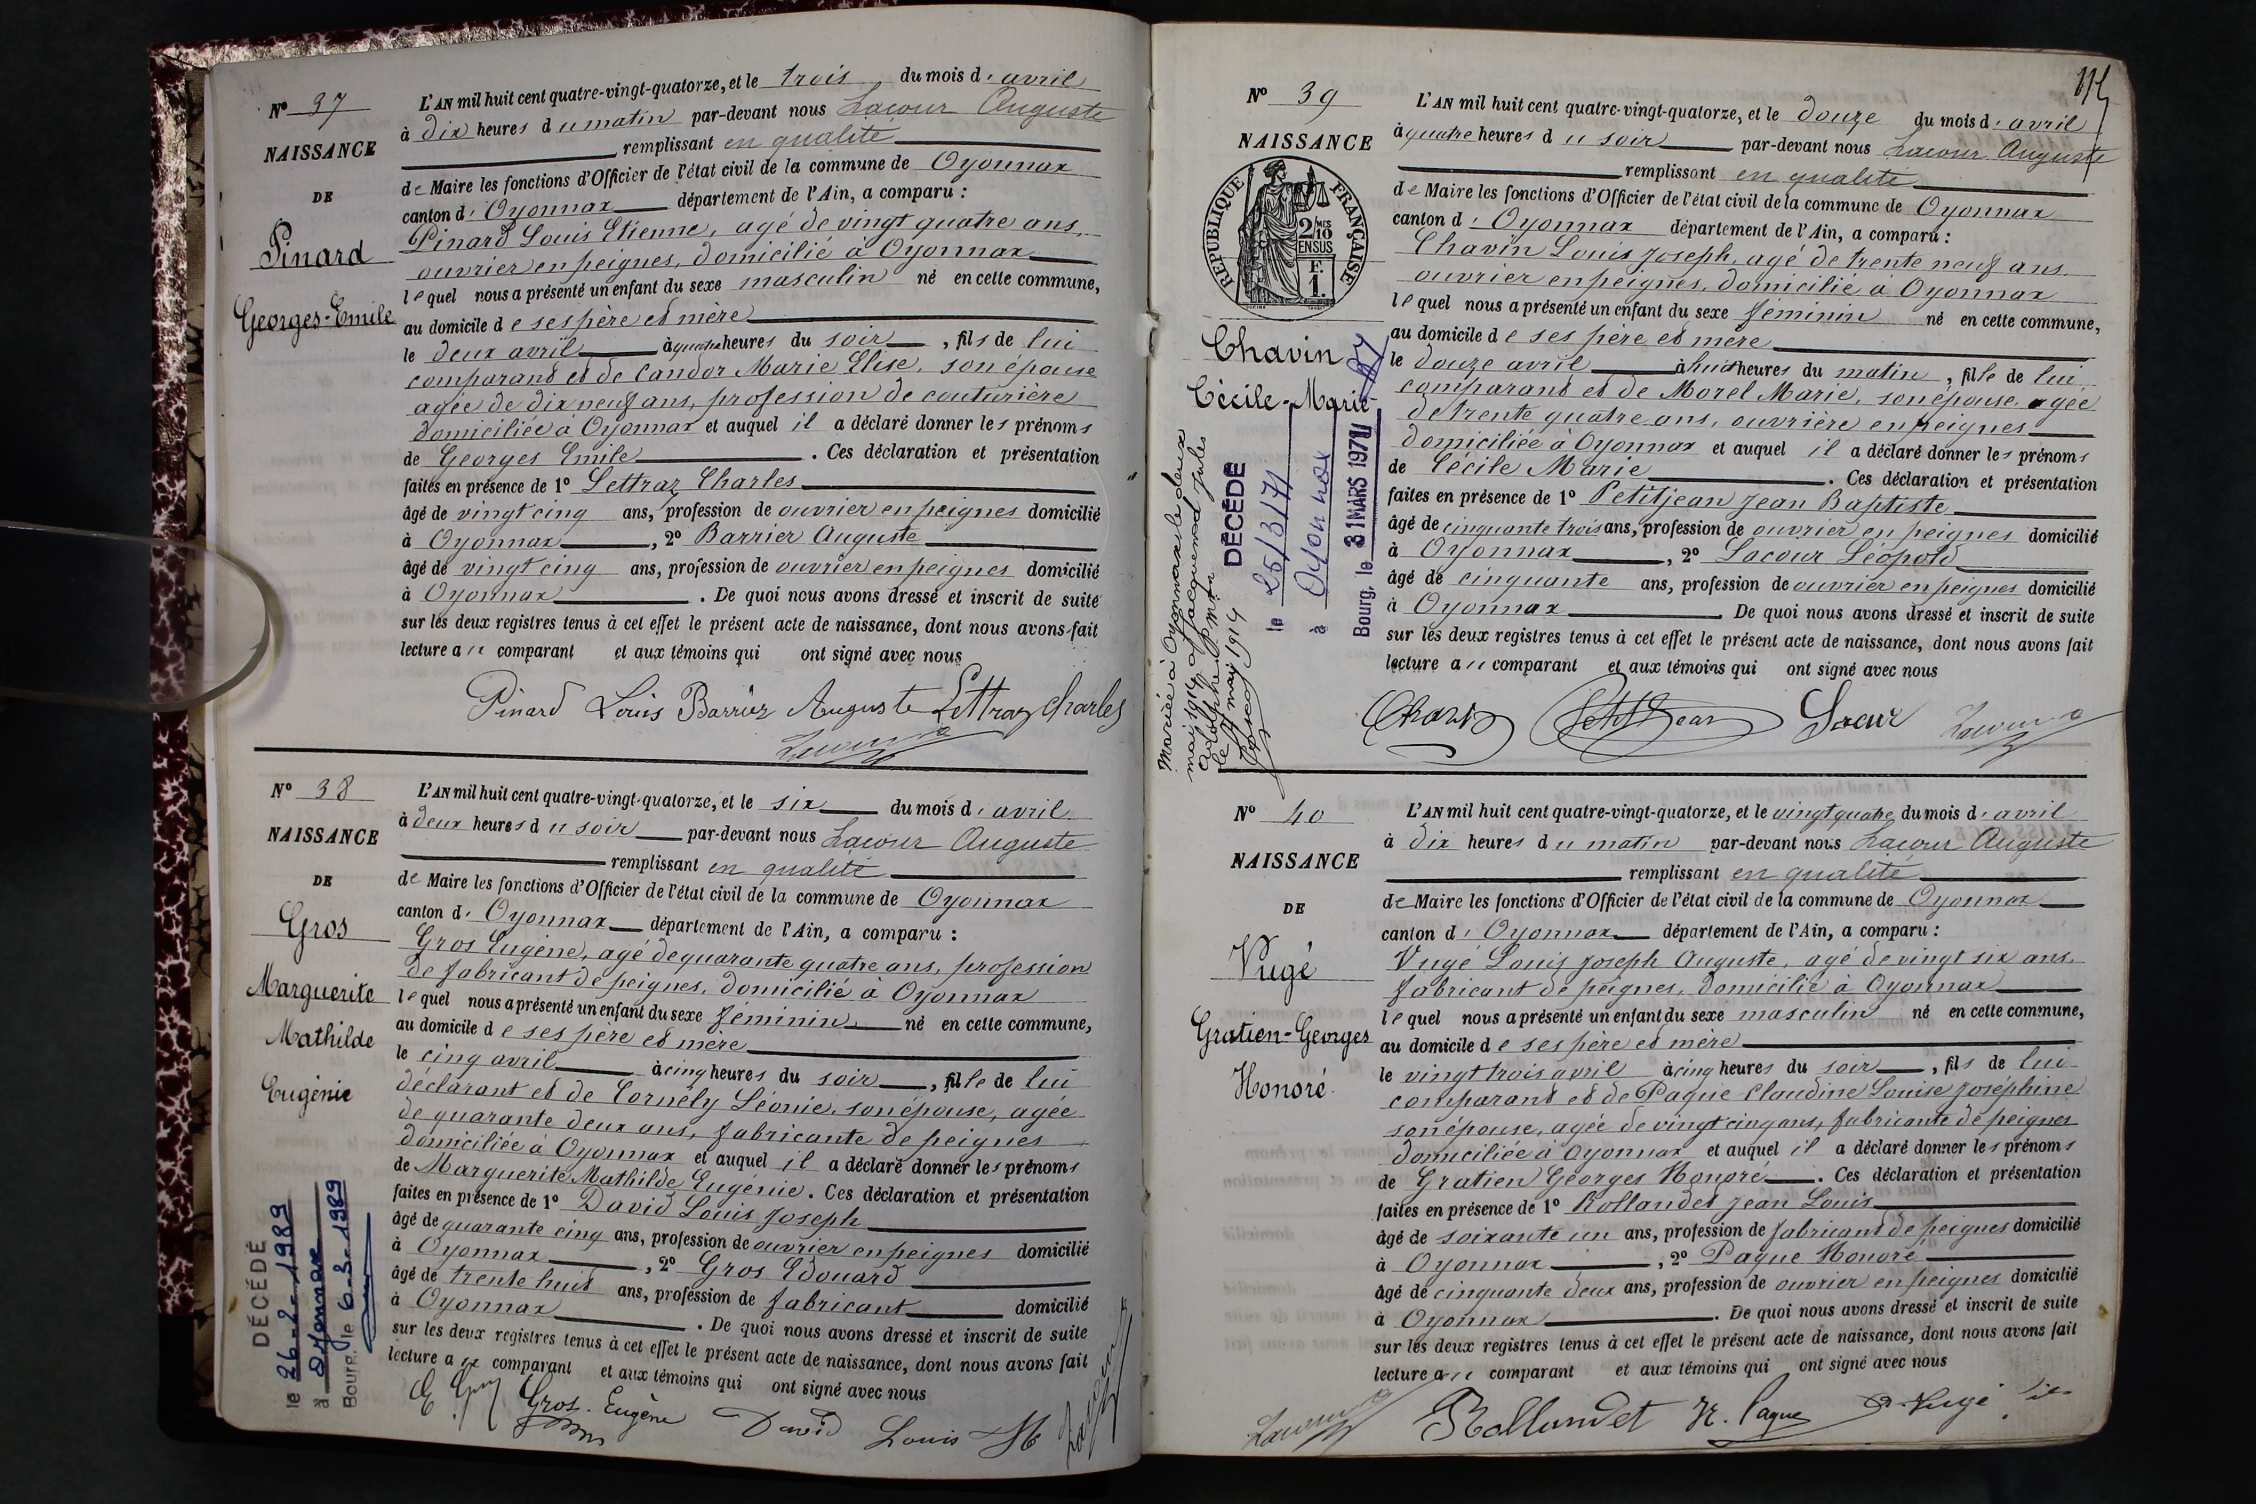 N° 37
NAISSANCE
DE
Pinard
Georges-Emile
L'AN mil huit cent quatre-vingt-quatorze, et le trois du mois d'avril
à dix heures du matin par-devant nous Lacour Auguste
remplissant en qualité
de Maire les fonctions d'Officier de l'état civil de la commune de Oyonnax
canton d'Oyonnax département de l'Ain, a comparu :
Pinard Louis Etienne, agé de vingt quatre ans,
ouvrier en peignes, domicilié à Oyonnax
lequel nous a présenté un enfant du sexe masculin né en cette commune,
au domicile de ses père et mère
le deux avril à quatre heures du soir, fils de lui
comparant et de Candor Marie Elise, son épouse
agée de dix neuf ans, profession de couturière
domiciliée à Oyonnax et auquel il a déclaré donner les prénoms
de Georges Emile. Ces déclaration et présentation
faites en présence de 1° Lettraz Charles
âgé de vingt cinq ans, profession de ouvrier en peignes domicilié
à Oyonnax, 2° Barrier Auguste
âgé de vingt cinq ans, profession de ouvrier en peignes domicilié
à Oyonnax. De quoi nous avons dressé et inscrit de suite
sur les deux registres tenus à cet effet le présent acte de naissance, dont nous avons fait
lecture au comparant et aux témoins qui ont signé avec nous
Pinard Louis Barrier Auguste Lettraz Charles
Lacour
N° 38
NAISSANCE
DE
Gros
Marguerite
Mathilde
Eugénie
DÉCÉDÉ
le 26-2-1989
à Oyonnax
Bourg, le 6-3-1989
L'AN mil huit cent quatre-vingt-quatorze, et le six du mois d'avril
à deux heures du soir par-devant nous Lacour Auguste
remplissant en qualité
de Maire les fonctions d'Officier de l'état civil de la commune de Oyonnax
canton d'Oyonnax département de l'Ain, a comparu :
Gros Eugène, agé de quarante quatre ans, profession
de fabricant de peignes, domicilié à Oyonnax
lequel nous a présenté un enfant du sexe féminin né en cette commune,
au domicile de ses père et mère
le cinq avril à cinq heures du soir, fille de lui
déclarant et de Cornely Léonie, son épouse, agée
de quarante deux ans, fabricante de peignes
domiciliée à Oyonnax et auquel il a déclaré donner les prénoms
de Marguerite Mathilde Eugénie. Ces déclaration et présentation
faites en présence de 1° David Louis Joseph
âgé de quarante cinq ans, profession de ouvrier en peignes domicilié
à Oyonnax, 2° Gros Edouard
âgé de trente huit ans, profession de fabricant domicilié
à Oyonnax. De quoi nous avons dressé et inscrit de suite
sur les deux registres tenus à cet effet le présent acte de naissance, dont nous avons fait
lecture au comparant et aux témoins qui ont signé avec nous
Gros Eugène David Louis
Lacour
N° 39
NAISSANCE
RÉPUBLIQUE FRANÇAISE
2/10 EN SUS
F. 1.
Chavin
Cécile-Marie
Mariée à Oyonnax le deux
mai 1914 avec Jacquemod Jules
le mai 1914
DÉCÉDÉ
le 25/3/71
à Oyonnax
Bourg, le 31 MARS 1971
L'AN mil huit cent quatre-vingt-quatorze, et le douze du mois d'avril
à quatre heures du soir par-devant nous Lacour Auguste
remplissant en qualité
de Maire les fonctions d'Officier de l'état civil de la commune de Oyonnax
canton d'Oyonnax département de l'Ain, a comparu :
Chavin Louis Joseph, agé de trente neuf ans
ouvrier en peignes, domicilié à Oyonnax
lequel nous a présenté un enfant du sexe féminin né en cette commune,
au domicile de ses père et mère
le douze avril à huit heures du matin, fille de lui
comparant et de Morel Marie, son épouse, agée
de trente quatre ans, ouvrière en peignes
domiciliée à Oyonnax et auquel il a déclaré donner les prénoms
de Cécile Marie. Ces déclaration et présentation
faites en présence de 1° Petitjean Jean Baptiste
âgé de cinquante trois ans, profession de ouvrier en peignes domicilié
à Oyonnax, 2° Lacour Léopold
âgé de cinquante ans, profession de ouvrier en peignes domicilié
à Oyonnax De quoi nous avons dressé et inscrit de suite
sur les deux registres tenus à cet effet le présent acte de naissance, dont nous avons fait
lecture au comparant et aux témoins qui ont signé avec nous
Chavin Petitjean Lacour
N° 40
NAISSANCE
DE
Vugé
Gratien-Georges
Honoré
L'AN mil huit cent quatre-vingt-quatorze, et le vingt quatre du mois d'avril
à dix heures du matin par-devant nous Lacour Auguste
remplissant en qualité
de Maire les fonctions d'Officier de l'état civil de la commune de Oyonnax
canton d'Oyonnax département de l'Ain, a comparu :
Vugé Louis Joseph Auguste, agé de vingt six ans,
fabricant de peignes, domicilié à Oyonnax
lequel nous a présenté un enfant du sexe masculin né en cette commune,
au domicile de ses père et mère
le vingt trois avril à cinq heures du soir, fils de lui
comparant et de Paque Claudine Louise Joséphine
son épouse, agée de vingt cinq ans, fabricante de peignes
domiciliée à Oyonnax et auquel il a déclaré donner les prénoms
de Gratien Georges Honoré. Ces déclaration et présentation
faites en présence de 1° Rollandet Jean Louis
âgé de soixante un ans, profession de fabricant de peignes domicilié
à Oyonnax, 2° Paque Honoré
âgé de cinquante deux ans, profession de ouvrier en peignes domicilié
à Oyonnax. De quoi nous avons dressé et inscrit de suite
sur les deux registres tenus à cet effet le présent acte de naissance, dont nous avons fait
lecture au comparant et aux témoins qui ont signé avec nous
Lacour Rollandet H. Paque Vugé